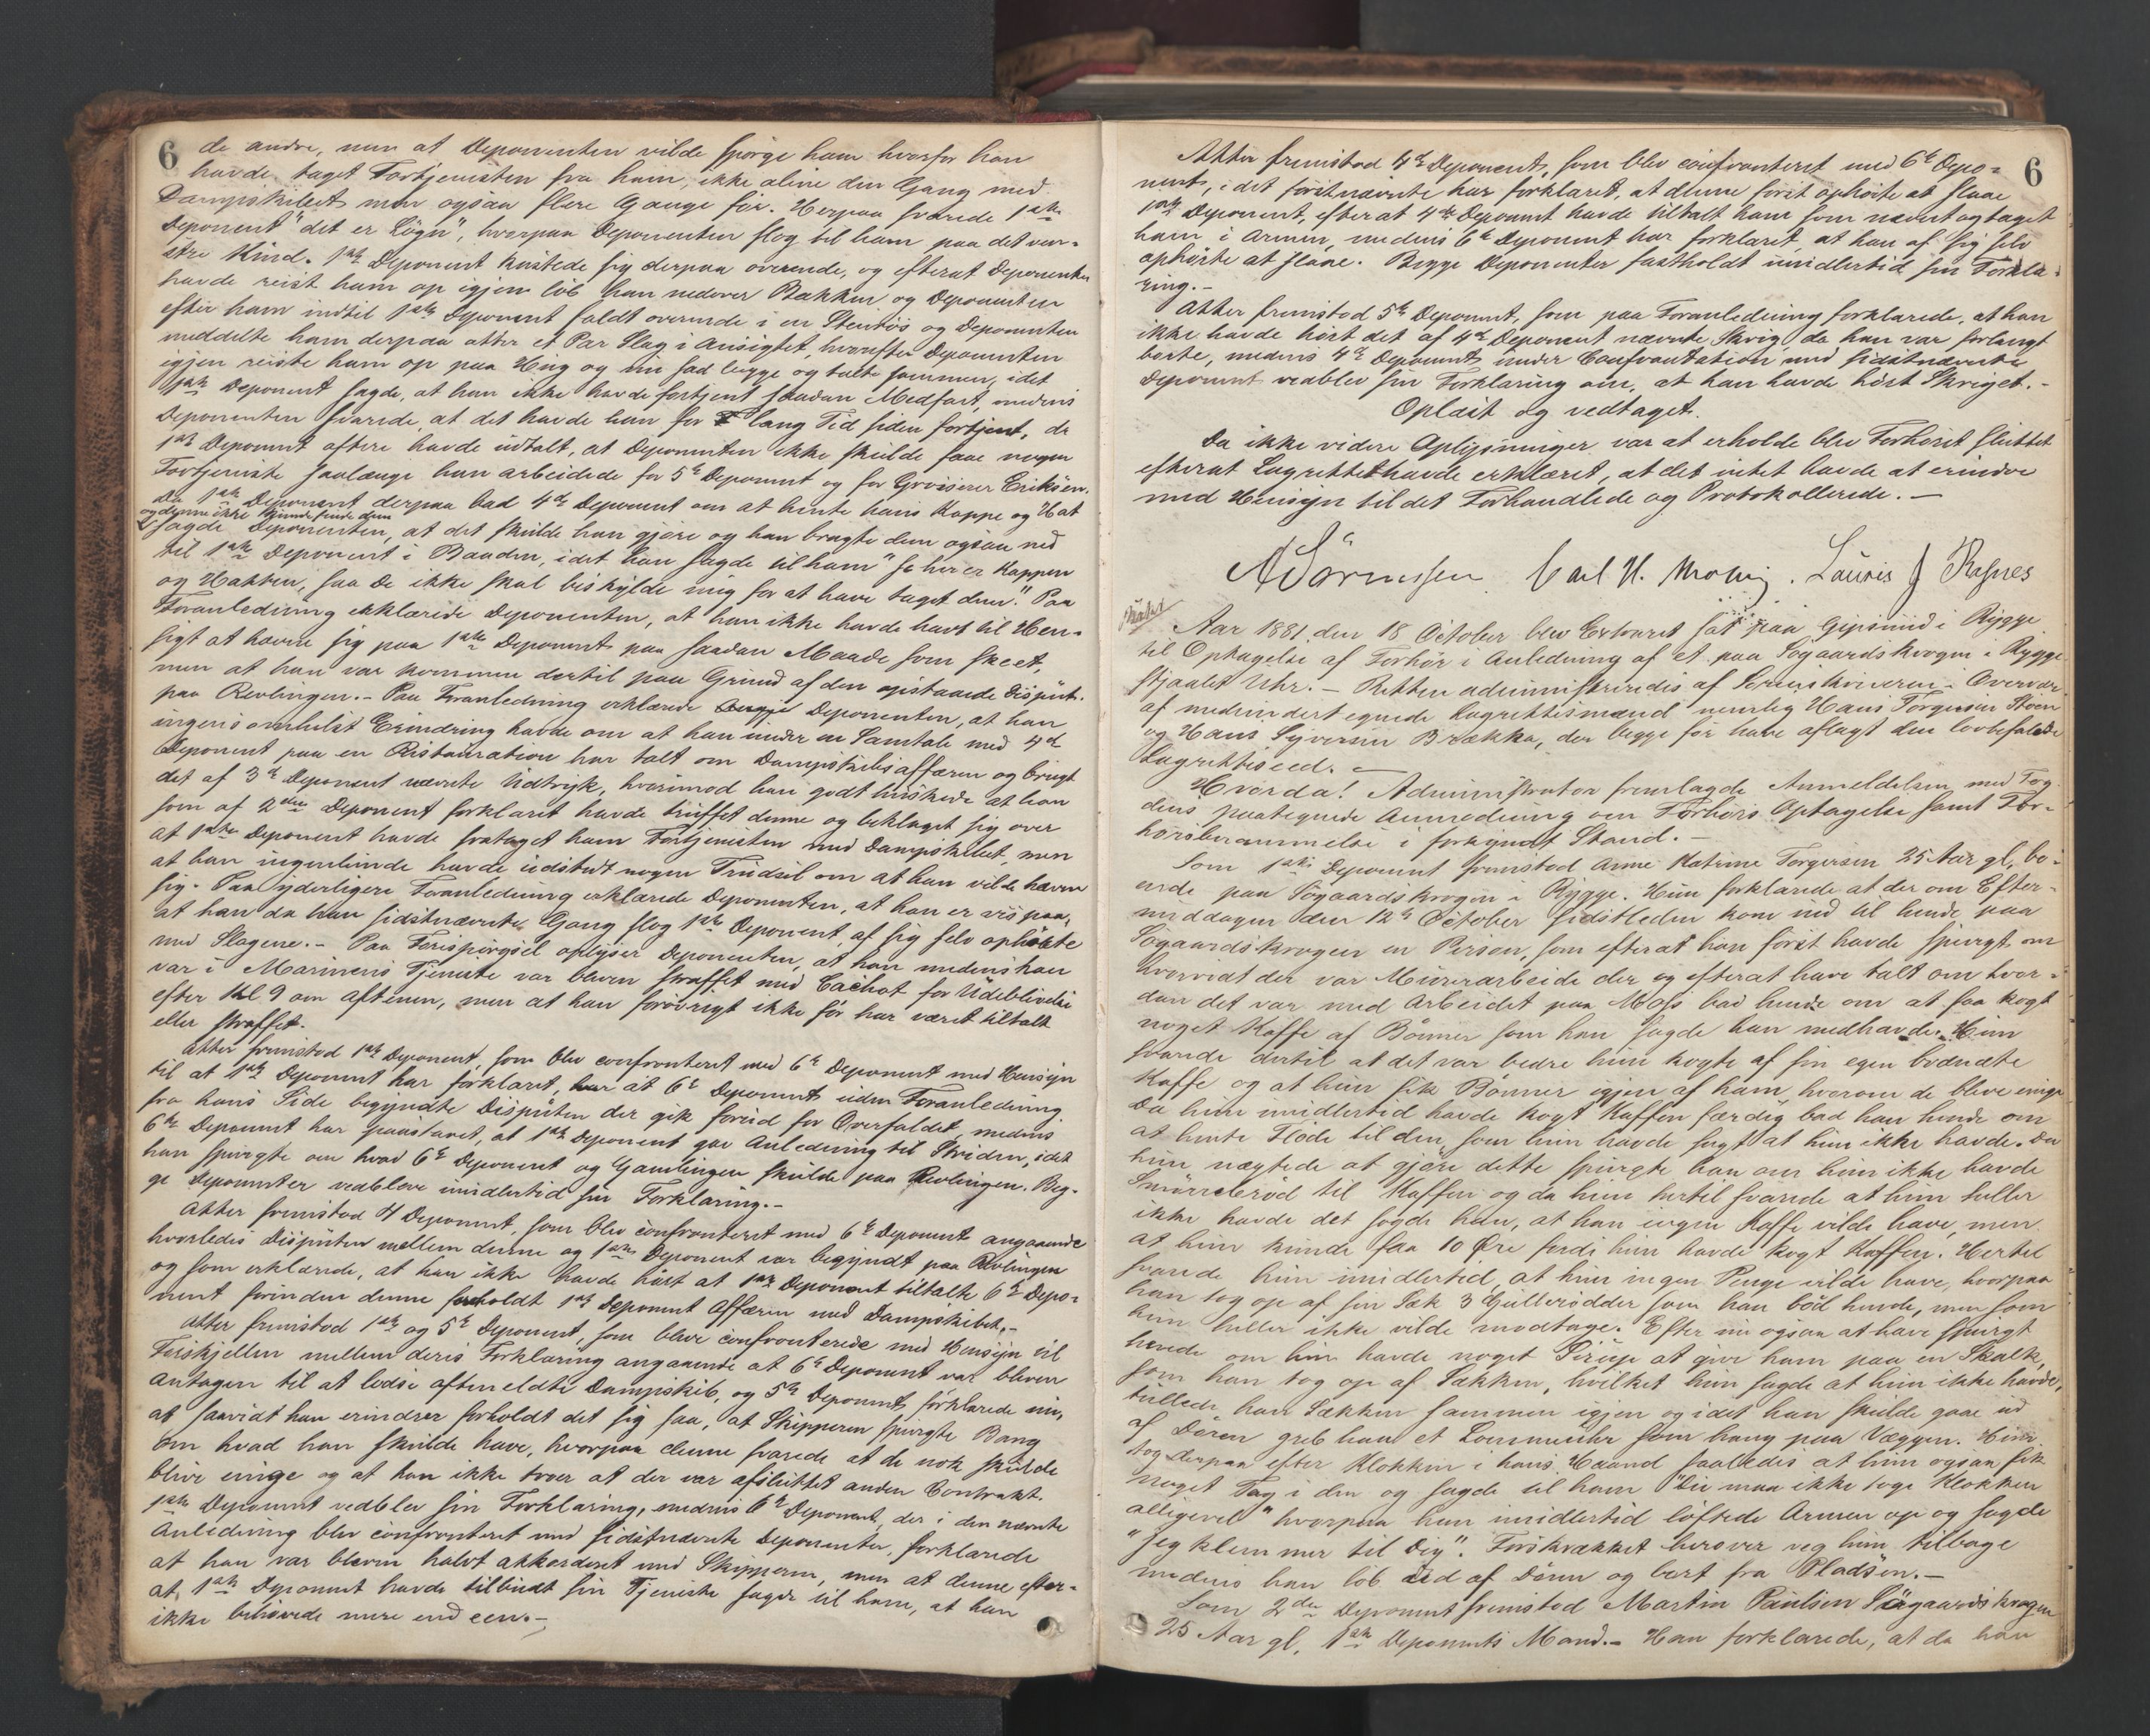 6
de andre, men at Deponenten vilde spørge ham hvorfor han
havde taget Fortjenesten fra ham, ikke alene den Gang med
Dampskibet men ogsaa flere Gange før. Herpaa svarede 1ste
Deponent "det er Løgn", hvorpaa Deponenten slog til ham paa det ven-
stre Kind. 1ste Deponent kastede sig derpaa overende, og efterat Deponenten
havde reist ham op igjen løb han nedover Bakken og Deponenten
efter ham indtil 1ste Deponent faldt overende i en Stenrøs og Deponenten
meddelte ham derpaa atter et Par Slag i Ansigtet, hvorefter Deponenten
igjen reiste ham op paa Høig og nu sad begge og talte sammen, idet
1ste Deponent sagde, at han ikke havde fortjent saadan Medfart, medens
Deponenten svarede, at det havde han for lang Tid siden fortjent, da
1ste Deponent oftere havde udtalt, at Deponenten ikke skulde faae nogen
Fortjeneste saalænge han arbeidede for 5te Deponent og for Grosserer Eriksen.
Da 1ste Deponent derpaa bad 4de Deponent om at hente hans Kappe og Hat
og denne ikke kunde finde dem
sagde Deponenten, at det skulde han gjøre og han bragte dem ogsaa ned
til 1ste Deponent i Baaden, idet han sagde til ham "se her er Kappen
og Hatten, saa De ikke skal beskylde mig for at have taget dem." Paa
Foranledning erklærede Deponenten, at han ikke havde havt til Hen-
sigt at hævne sig paa 1ste Deponent paa saadan Maade som skeet,
men at han var kommen dertil paa Grund af den opstaaede Disput
paa Revlingen.- Paa Foranledning erklærede Deponenten, at han
ingensomhelst Erindring havde om at han under en Samtale med 4de
Deponent paa en Restauration har talt om Dampskibsaffæren og brugt
det af 3de Deponent nævnte Udtryk, hvorimod han godt huskede at han
som af 2den Deponent forklaret havde truffet denne og beklaget sig over
at 1ste Deponent havde frataget ham Fortjenesten med Dampskibet, men
at han ingenlunde havde udstødt nogen Trudsel om at han vilde hævne
sig. Paa yderligere Foranledning erklærede Deponenten, at han er vis paa,
at han da han sidstnævnte Gang slog 1ste Deponent, af sig selv ophørte
med Slagene.- Paa Forespørgsel oplyser Deponenten, at han medens han
var i Marinens Tjeneste var bleven straffet med Cachot for Udeblivelse
efter Kl 9 om Aftenen, men at han forøvrigt ikke før har været tiltalt
eller straffet.
Atter fremstod 1ste Deponent, som blev confronteret med 6te Deponent med Hensyn
til at 1ste Deponent har forklaret, at 6te Deponent uden Foranledning
fra hans Side begyndte Disputen der gik forud for Overfaldet, medens
6te Deponent har paastaaet, at 1ste Deponent gav Anledning til Striden, idet
han spurgte om hvad 6te Deponent og Gamlingen skulde paa Revlingen. Beg-
ge Deponenter vedbleve imidlertid sin Forklaring.-
Atter fremstod 4 Deponent, som blev confronteret med 6te Deponent angaaende
hvorledes Disputen mellem denne og 1ste Deponent var begyndt paa Revlingen
og som erklærede, at han ikke havde hørt at 1ste Deponent tiltalte 6te Depo-
nent forinden denne foreholdt 1ste Deponent Affæren med Dampskibet.-
Atter fremstod 1ste og 5te Deponent, som bleve confronterede med Hensyn til
Forskjellen mellem deres Forklaring angaaende at 6te Deponent var bleven
antagen til at lodse oftmeldte Dampskib, og 5te Deponent forklarede nu,
at saavidt han erindrer forholdt det sig saa, at Skipperen spurgte Bang
om hvad han skulde have, hvorpaa denne svarede at de nok skulde
blive enige og at han ikke troer at der var afsluttet anden Contrakt.
1ste Deponent vedblev sin Forklaring, medens 6te Deponent, der i den nævnte
Anledning blev confronteret med sidstnævnte Deponenter, forklarede
at han var bleven halvt akkorderet med Skipperen, men at denne efter-
at 1ste Deponent havde tilbudt sin Tjeneste sagde til ham, at han
ikke behøvede mere end een.-
6
Atter fremstod 4de Deponent, som blev confronteret med 6te Depo-
nent, idet førstnævnte har forklaret, at denne først ophørte at slaae
1ste Deponent, efterat 4de Deponent havde tiltalt ham som nævnt og taget
ham i Armen, medens 6te Deponent har forklaret, at han af sig selv
ophørte at slaae. Begge Deponenter fastholdt imidlertid sin Forkla-
ring.-
Atter fremstod 5te Deponent, som paa Foranledning forklarede, at han
ikke havde hørt det af 4de Deponent nævnte Skrig, da han var forlangt
borte, medens 4de Deponent under Confrontation med sidstnævnte
Deponent vedblev sin Forklaring om, at han havde hørt Skriget.-
Oplæst og vedtaget.
Da ikke videre Oplysninger var at erholde blev Forhøret sluttet
efterat Lagrettet havde erklæret, at det intet havde at erindre
med Hensyn til det Forhandlede og Protokollerede.-
A Sørenssen. Carl H. . Lauris J Ragnes
Aar 1881 den 18 October blev Extraret sat paa Gipsund i Rygge
til Optagelse af Forhør i Anledning af et paa Søgaardskrogen i Rygge
stjaalet Uhr.- Retten administreredes af Sorenskriveren. Overvær
af medundertegnede Lagrettesmænd nemlig Hans Torgersen Støen
og Hans Syversen Brække, der begge før have aflagt den lovbefalede
Lagrettesed.-
Hvorda! Administrator fremlagde Anmeldelsen med Fog-
dens paategnede Anmodning om Forhørs Optagelse samt For-
hørsberammelse i forkyndt Stand.-
Som 1ste Deponent fremstod Anne Katrine Torgersen 25 Aar gl, bo-
ende paa Søgaardskrogen i Rygge. Hun forklarede at der om Efter-
middagen den 12te October sidstleden kom ind til hende paa
Søgaardskrogen en Person, som efterat han først havde spurgt om
hvorvidt der var Murerarbeide der og efterat have talt om hvor-
dan det var med Arbeidet paa Moss bad hende om at faa kogt
noget Kaffe af Bønner som han sagde han medhavde. Hun
svarede dertil at det var bedre hun kogte af sin egen brændte
Kaffe og at hun fik Bønner igjen af ham hvorom de bleve enige
Da hun imidlertid havde kogt Kaffen færdig bad han hende om
at hente Fløde til den, som hun havde sagt at hun ikke havde. Da
hun nægtede at gjøre dette spurgte han om hun ikke havde
Smørrebrød til Kaffen og da hun hertil svarede at hun heller
ikke havde det sagde han, at han ingen Kaffe vilde have, men
at hun kunde faa 10 Øre fordi hun havde kogt Kaffen. Hertil
svarede hun imidlertid, at hun ingen Penge vilde have, hvorpaa
han tog op af sin Sæk 3 Gullerødder som han bød hende, men som
hun heller ikke vilde modtage. Efter nu ogsaa at have spurgt
hende om hun havde noget Sirup at give ham paa en Skalk,
som han tog op af Sækken, hvilket hun sagde at hun ikke havde,
tullede han Sækken sammen igjen og idet han skulde gaae ud
af Døren greb han et Lommeuhr som hang paa Væggen. Hun
tog derpaa efter Klokken i hans Haand saaledes at hun ogsaa fik
noget Tag i den og sagde til ham "Du maa ikke tage Klokken
alligevel" hvorpaa han imidlertid løftede Armen op og sagde
"Jeg klemmer til Dig". Forskrækket herover veg hun tilbage
medens han løb ud af Døren og bort fra Pladsen.-
Som 2den Deponent fremstod Martin Paulsen Søgaardskrogen
25 Aar gl, 1ste Deponents Mand.- Han forklarede, at da han